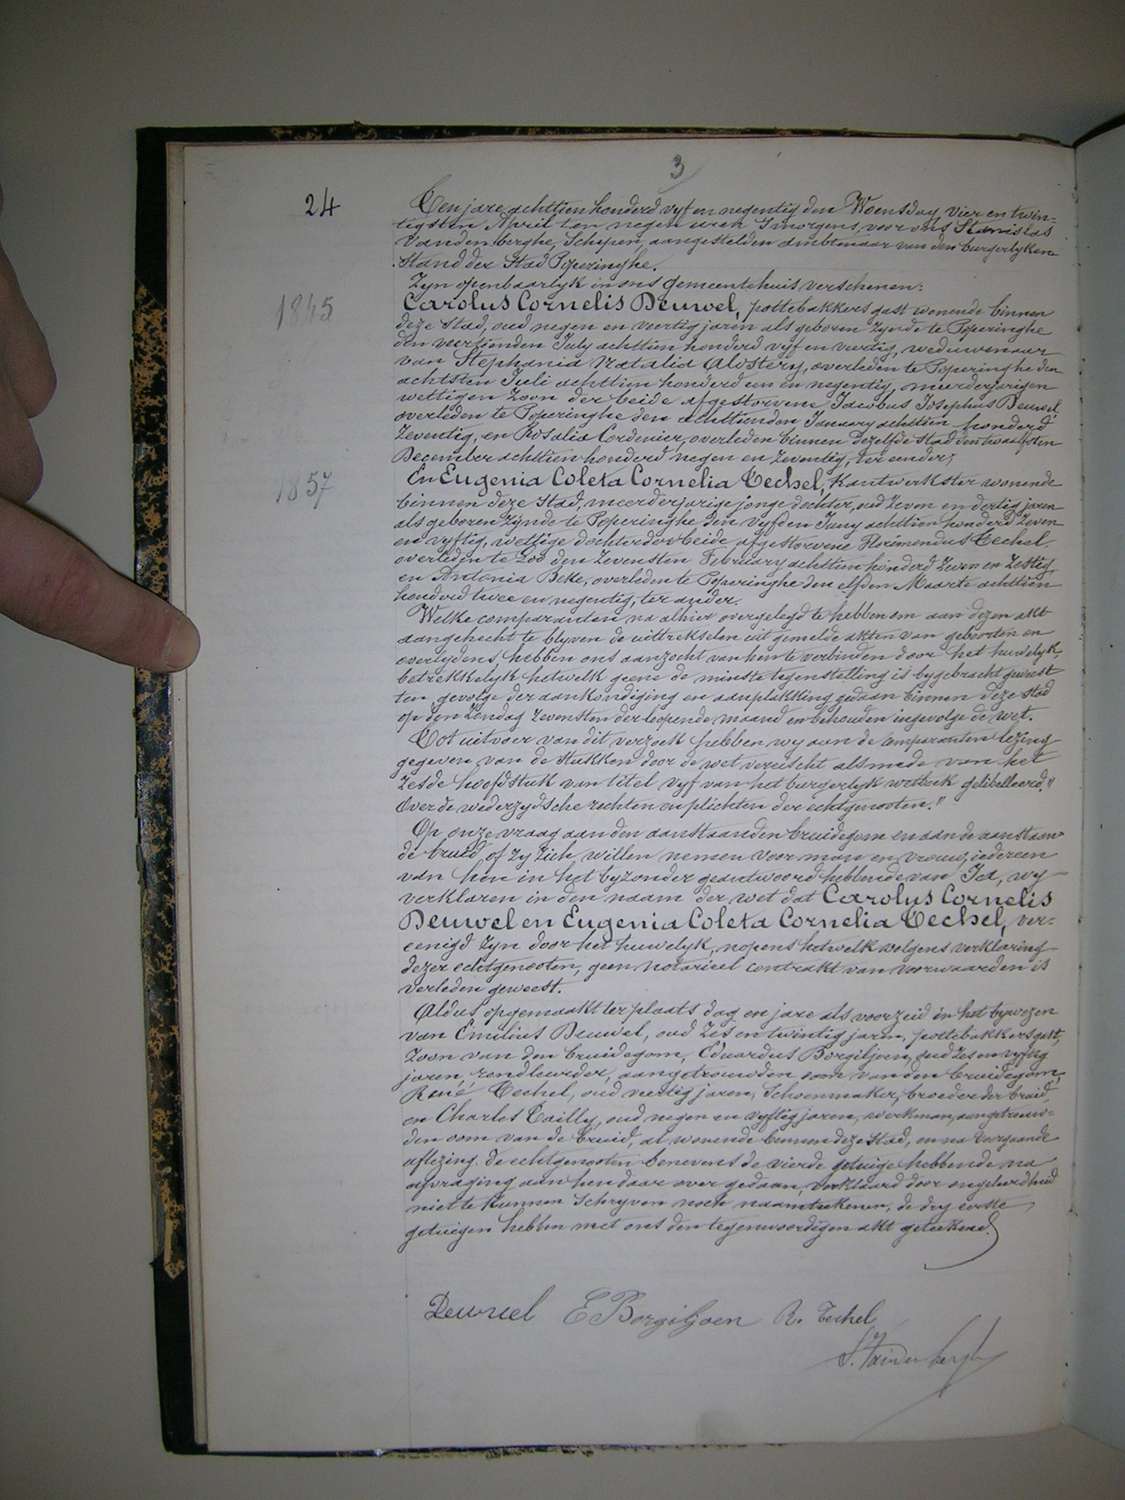 3
24
Ten jare achttien honderd vyf en negentig den Woensdag vier en twin-
tigsten April ten negen uren 's morgens, voor ons Stanislas
Vandenberghe, Schepen, aangestelden ambtenaar van den burgerlyken
Stand der Stad Poperinghe.
Zyn openbaarlyk in ons gemeentehuis verschenen:
1845
Carolus Cornelis Deuwel, pottebakkersgast wonende binnen
deze stad, oud negen en veertig jaren als geboren zynde te Poperinghe
den July achttien honderd vyf en veertig, weduwenaar
van Stephania Natalia overleden te Poperinghe den
achtsten Juli achttien honderd een en negentig, meerderjarigen
wettigen zoon der beide afgestorvene Jacobus Josephus Deuwel,
overleden te Poperinghe den achttienden January achttien honderd
zeventig, en Rosalia Cordenier, overleden binnen dezelfde stad den twaalfsten
December achttien honderd negen en zeventig, ter eender;
1857
En Eugenia Coleta Cornelia Techel, kantwerkster wonende
binnen deze stad, meerderjarige jonge dochter, oud zeven en dertig jaren
als geboren zynde te Poperinghe den vyfden Juny achttien honderd zeven
en vyftig, wettige dochter der beide afgestorvene Florimondus Techel
overleden te Loo den zevensten February achttien honderd zeven en zestig
en Antonia Beke, overleden te Poperinghe den elfden Maarte achttien
honderd twee en negentig, ter ander.
Welke comparanten na alhier overgelegd te hebben om aan dezen akt
aangehecht te blyven de uittrekselen uit gemelde akten van geboorten en
overlydens, hebben ons aanzocht van hen te verbinden door het huwelyk,
betrekkelyk hetwelk geene de minste tegenstelling is bygebracht geweest
ten gevolge der aankondiging en aanplakking gedaan binnen deze stad
op den zondag zevensten der loopende maand en behouden ingevolge de wet.
Tot uitvoer van dit verzoek hebben wy aan de comparanten lezing
gegeven van de stukken door de wet vereischt alsmede van het
zesde hoofdstuk van titel vyf van het burgerlyk wetboek gelibelleerd "
Over de wederzydsche rechten en plichten der echtgenooten."
Op onze vraag aan den aanstaanden bruidegom en aan de aanstaan-
de bruid of zy zich willen nemen voor man en vrouw, iedereen
van hen in het byzonder geantwoord hebbende van Ja, wy
verklaren in den naam der wet dat Carolus Cornelis
Deuwel en Eugenia Coleta Cornelia Techel, ver-
eenigd zyn door het huwelyk, nopens hetwelk volgens verklaring
dezer echtgenooten, geen notarieel contrakt van voorwaarden is
verleden geweest.
Aldus opgemaakt ter plaats dag en jare als voorzeid in het bywezen
van Emilius Deuwel, oud zes en twintig jaren, pottebakkersgast,
zoon van den bruidegom, Eduardus Borgiljoen, oud zes en vyftig
jaren, aangetrouwden oom van den bruidegom,
René Techel, oud veertig jaren, Schoenmaker, broeder der bruid,
en Charles Cailly, oud negen en vyftig jaren, werkman, aangetrouw-
den oom van de bruid, al wonende binnen deze stad, en na voorgaande
aflezing de echtgenooten benevens de vierde getuige hebbende na
afvraging aan hen daar over gedaan, verklaard door ongeleerdheid
niet te kunnen schryven noch naamteekenen, de dry eerste
getuigen hebben met ons den tegenwoordigen akt geteekend.
Deuwel E Borgiljoen R. Techel
S. Vandenberghe